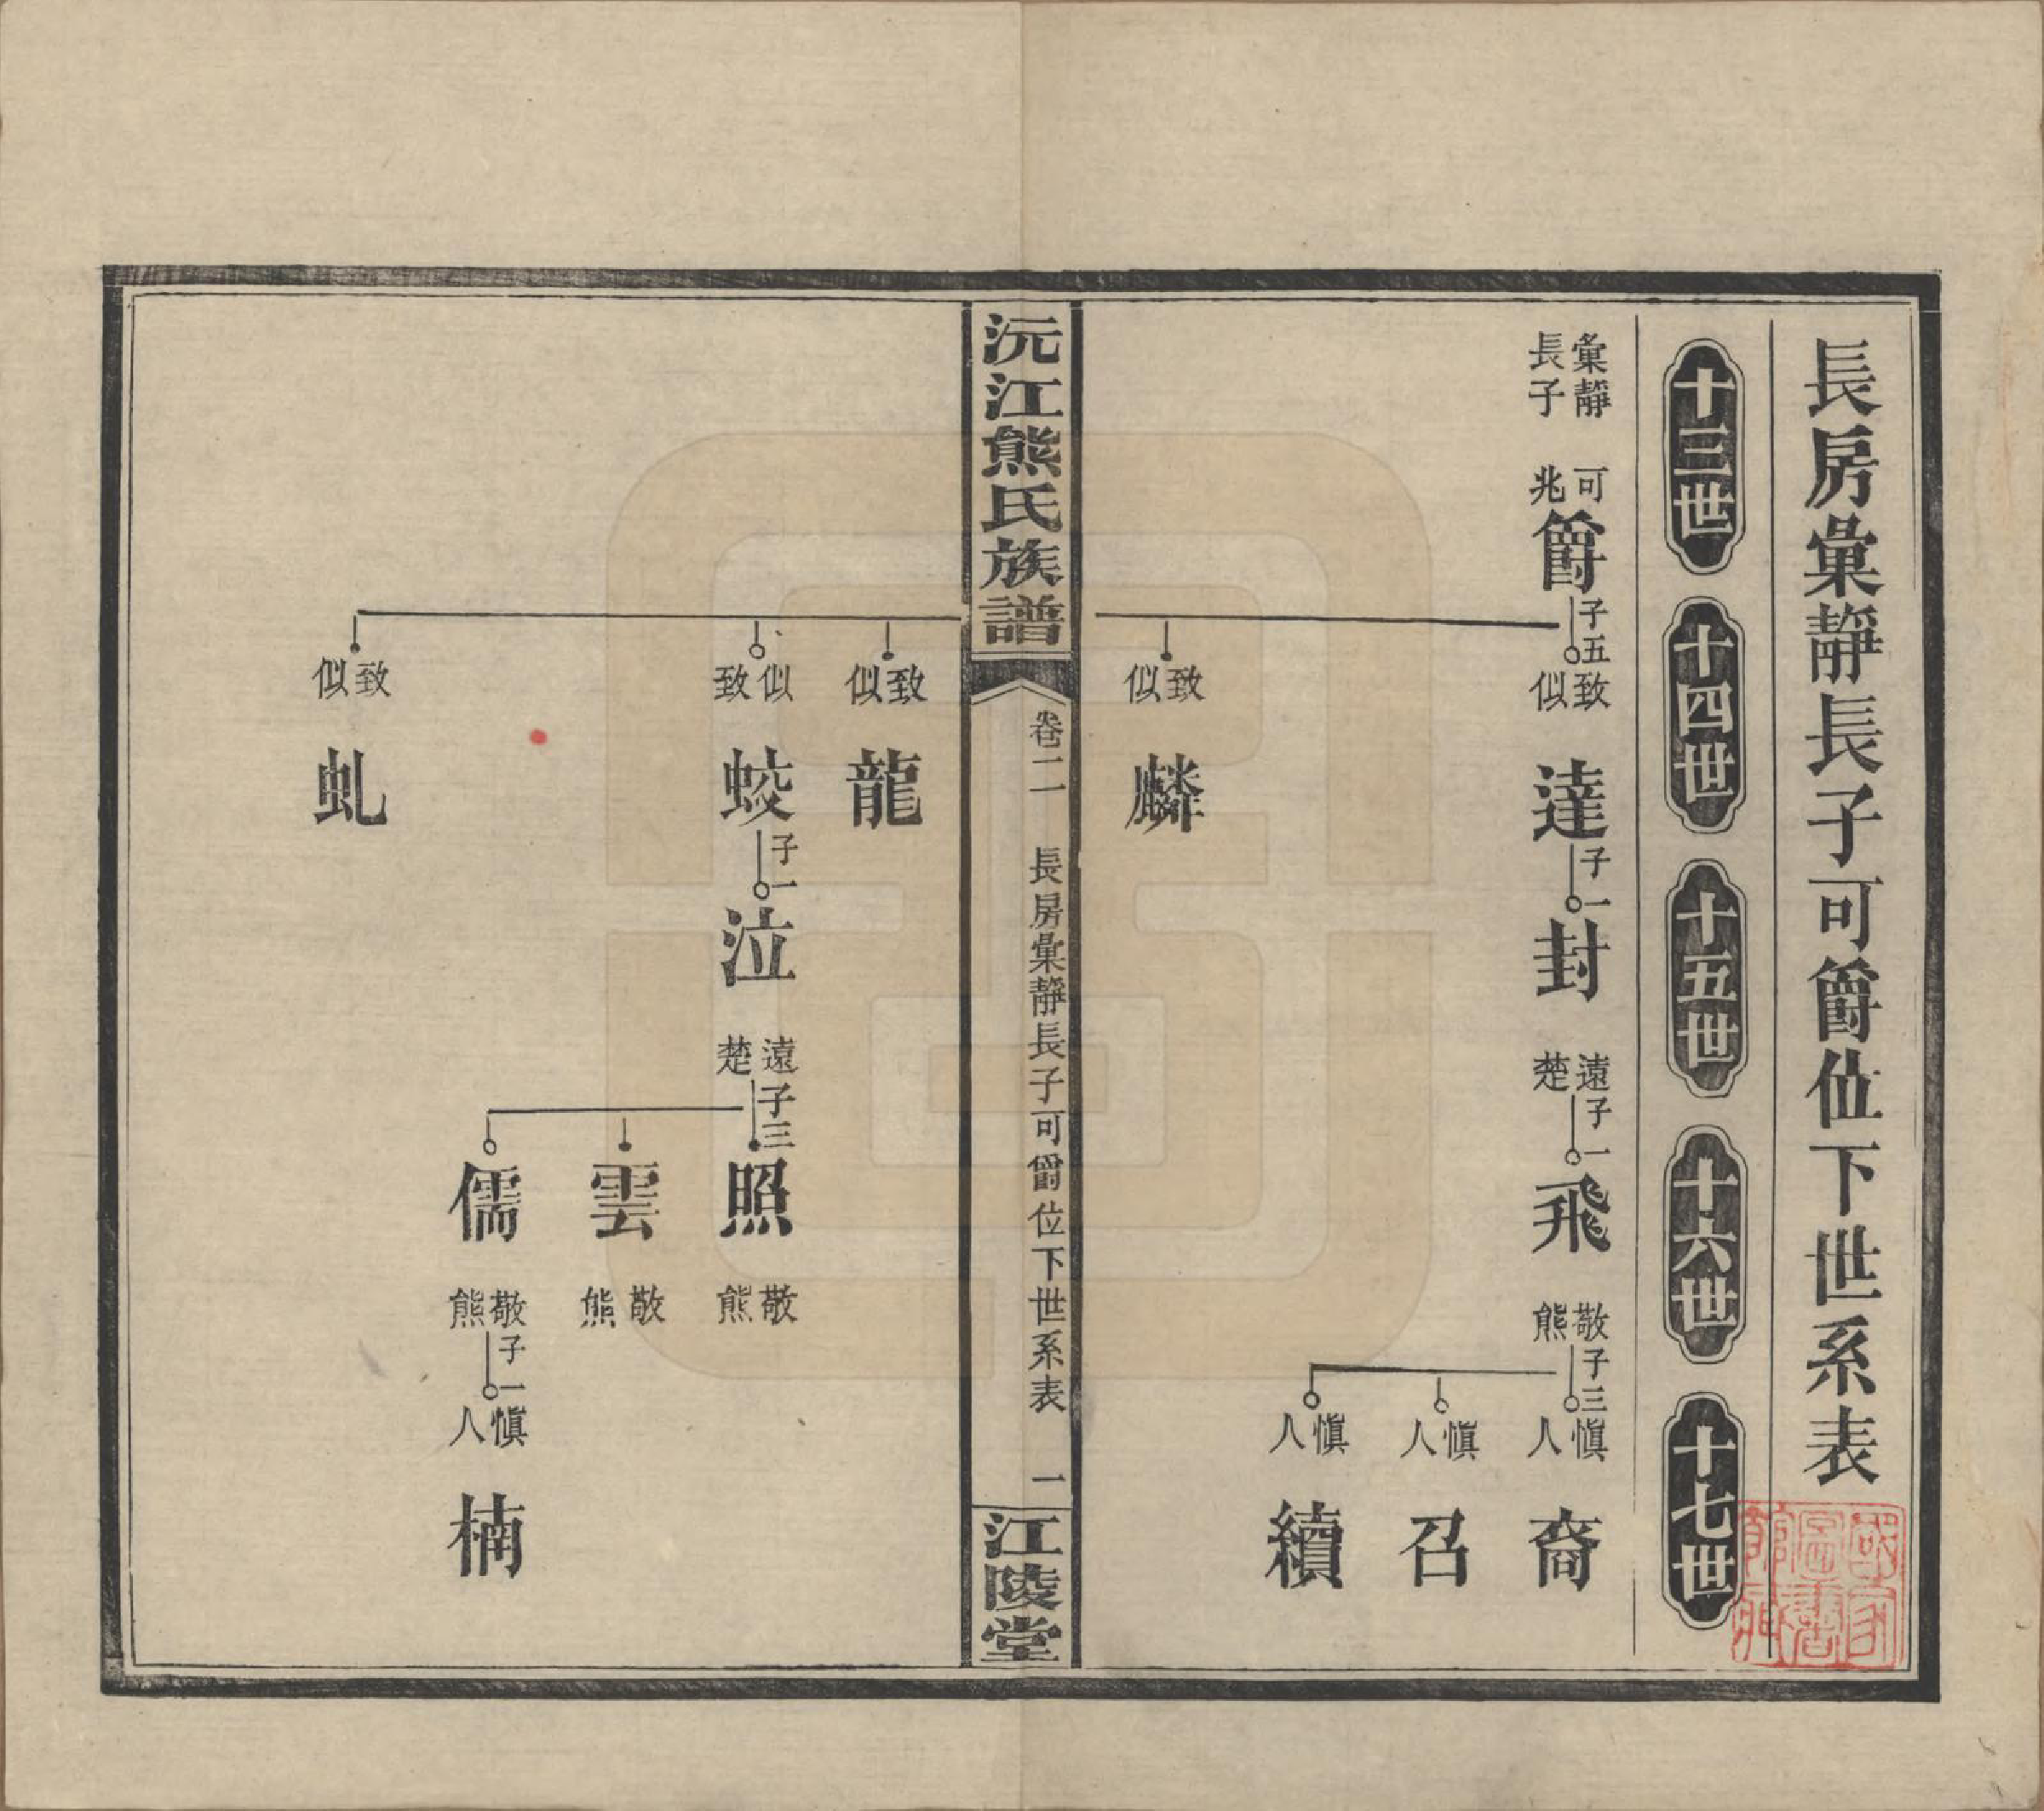 長房彙靜長子可爵位下世系表
十三世
十四世
十五世
十六世
十七世
彙靜
長子
可
兆
爵
子五
致
似
達
子一
封
遠
楚
子一
飛
敬
熊
子三
慎
人
裔
慎
人
召
慎
人
續
致
似
麟
沅江熊氏族譜
卷二
長房彙靜長子可爵位下世系表
一
江陵堂
致
似
龍
似
致
蛟
子一
泣
遠
楚
子三
照
敬
熊
雲
敬
熊
儒
敬
熊
子一
慎
人
楠
致
似
虬